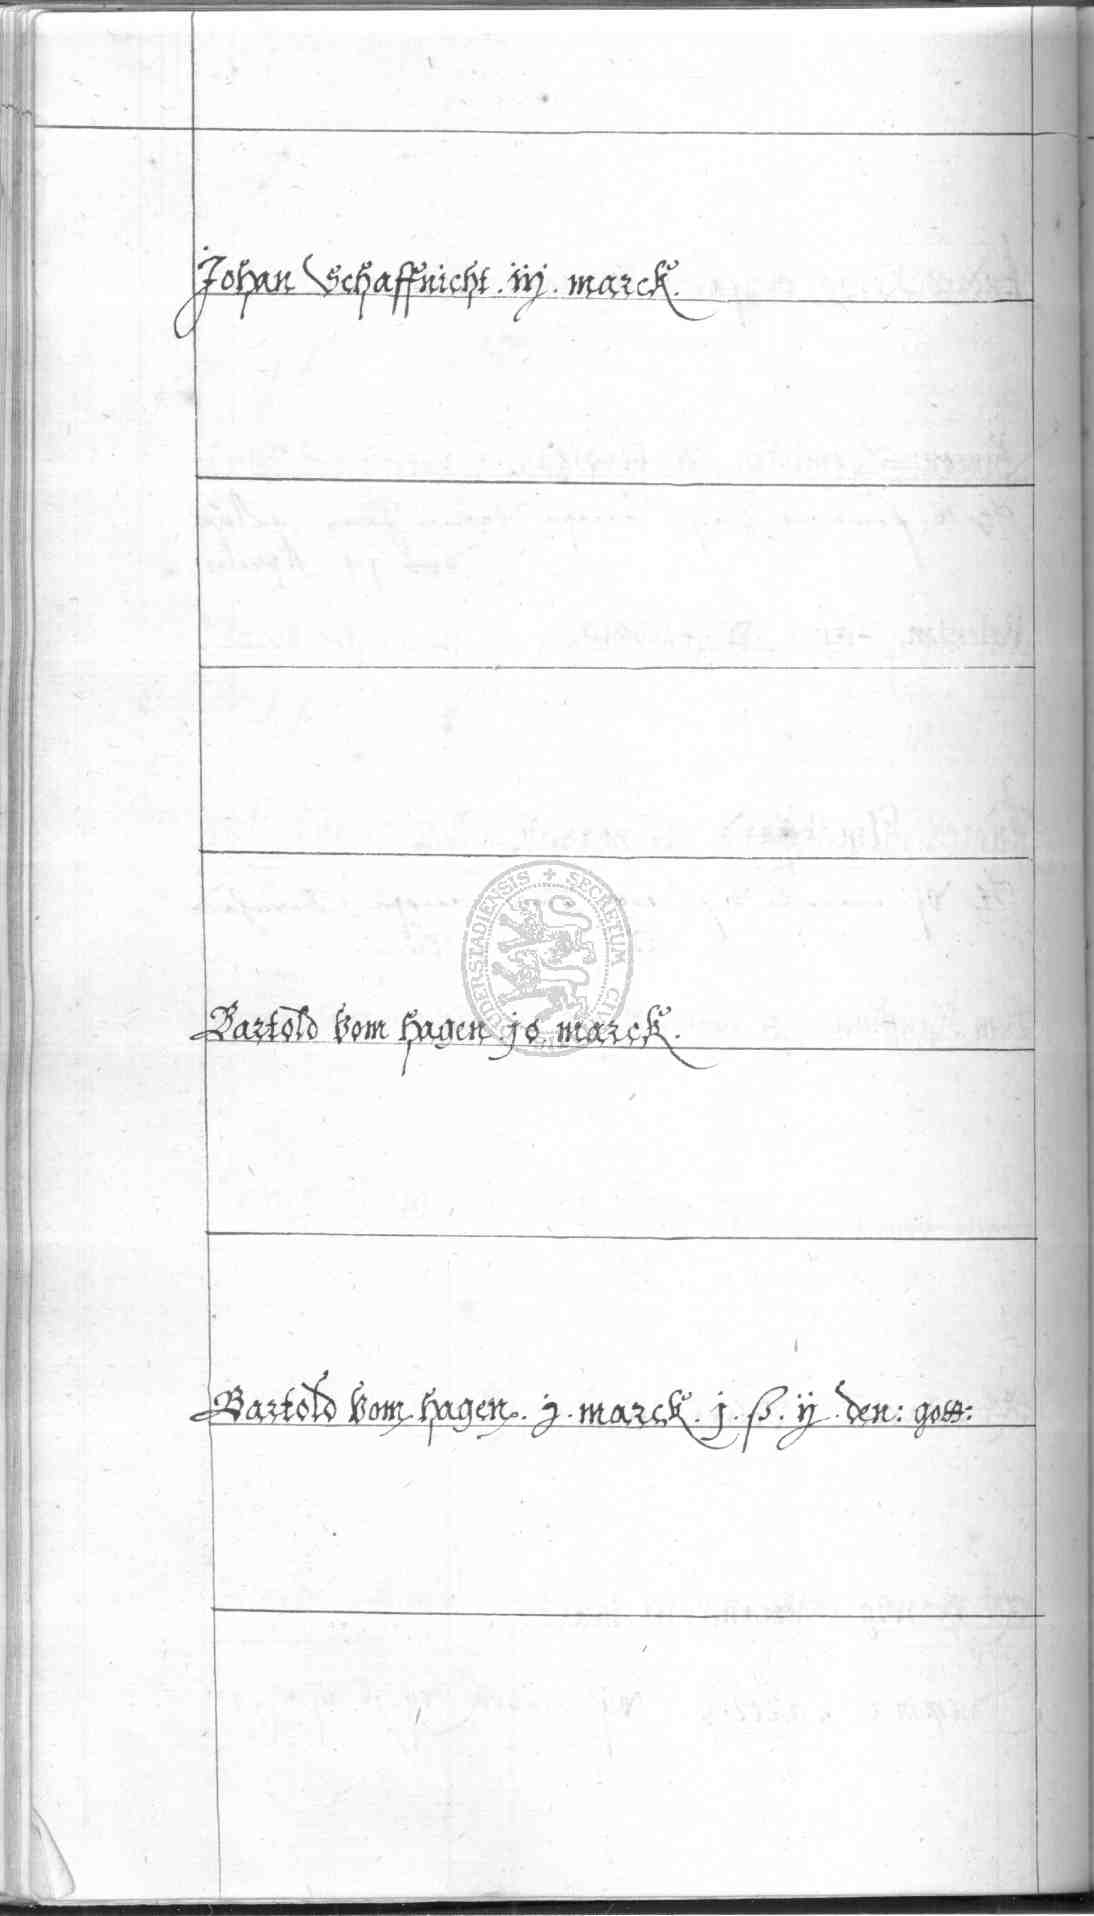 Johan Schaffnicht . iij . marck .
SECRETUM CIVI DUDERSTADIENSIS
Bartold vom hagen . jo marck .
Bartold vom hagen . j . marck . j . ß . ij . den : gott :